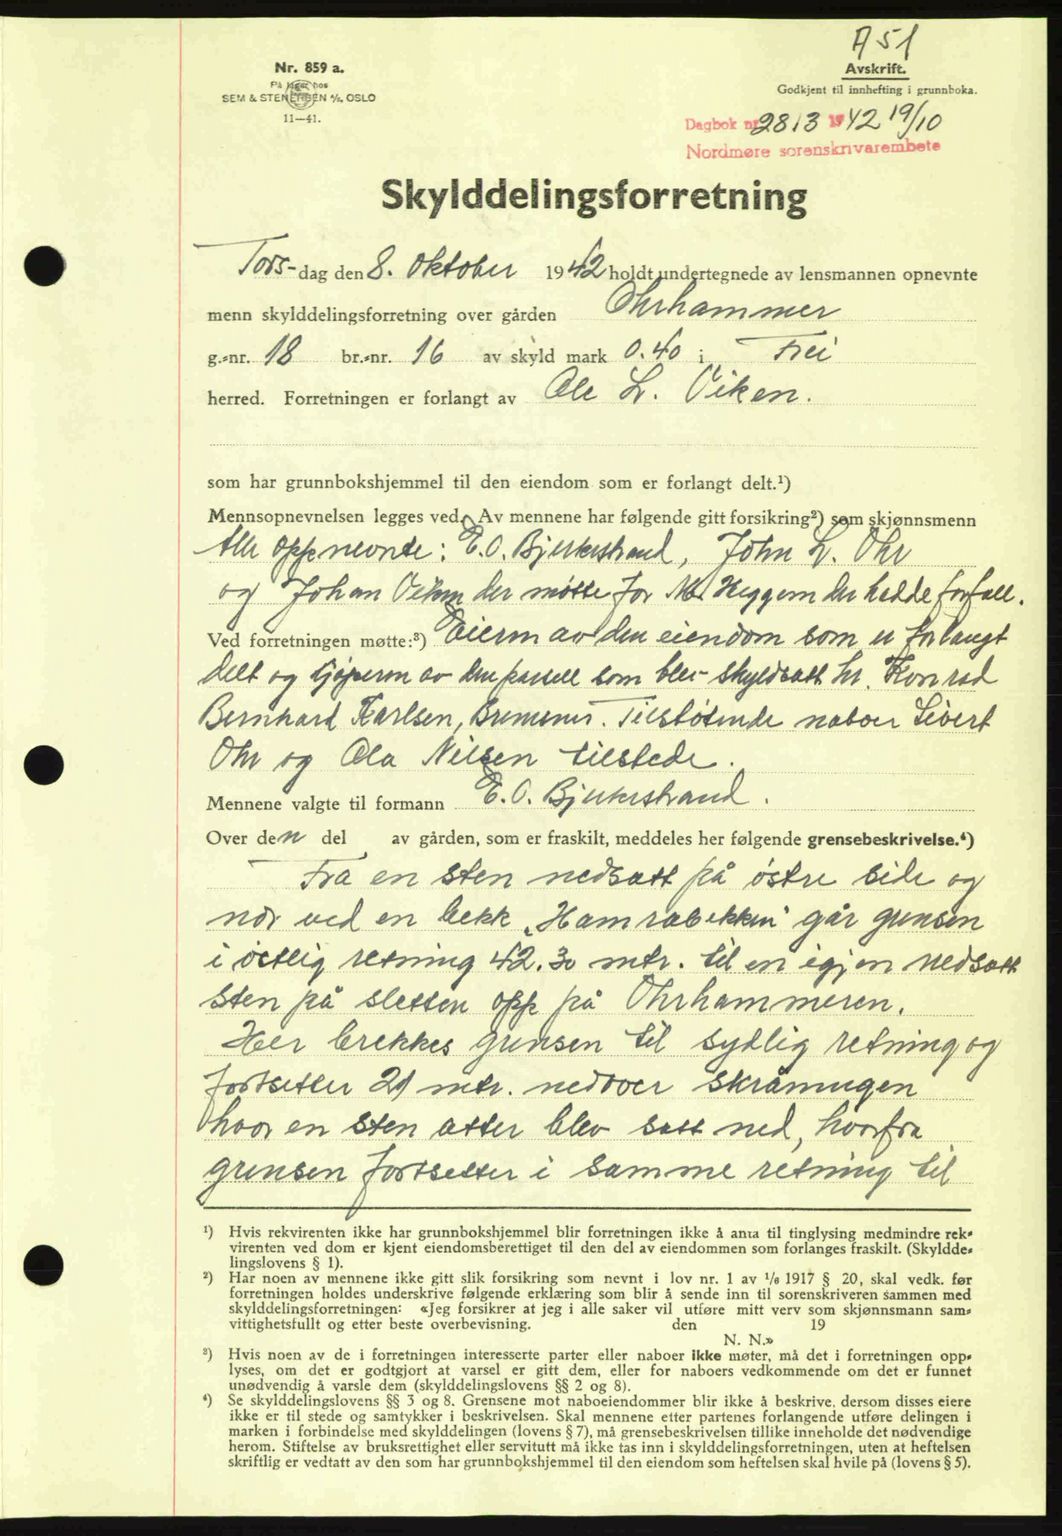 A 51
Nr. 859 a.
På lager hos
SEM & STENERSEN A/S, OSLO
11—41.
Avskrift.
Godkjent til innhefting i grunnboka.
Dagbok nr. 2813 1942 19/10
Nordmøre sorenskrivarembete
Skylddelingsforretning
Tors-dag den 8. Oktober 1942 holdt undertegnede av lensmannen opnevnte
menn skylddelingsforretning over gården Ohrhammer
g.-nr. 18 br.-nr. 16 av skyld mark 0.40 i Frei
herred. Forretningen er forlangt av Ole L. Viken.
som har grunnbokshjemmel til den eiendom som er forlangt delt.¹)
Mennsopnevnelsen legges ved. Av mennene har følgende gitt forsikring²) som skjønnsmenn
Alle oppnevnte: E.O. Bjerkestrand, John L. Ohr
og Johan Viken der møtte for M. Heggem der hadde forfall.
Ved forretningen møtte:³) Eieren av den eiendom som er forlangt
delt og kjøperen av den parsell som blev skyldsatt hr. Konrad
Bernhard Karlsen, Bremsnes. Tilstøtende naboer Sivert
Ohr og Ola Nilsen tilstede.
Mennene valgte til formann E.O. Bjerkestrand.
Over den del av gården, som er fraskilt, meddeles her følgende grensebeskrivelse.⁴)
Fra en sten nedsatt på østre side og
nær ved en bekk "Hamrabekken" går grensen
i østlig retning 42.30 mtr. til en igjen nedsatt
sten på sletten opp på Ohrhammeren.
Her brekkes grensen til sydlig retning og
fortsetter 21 mtr. nedover skråningen
hvor en sten atter blev satt ned, hvorfra
grensen fortsetter i samme retning til
¹) Hvis rekvirenten ikke har grunnbokshjemmel blir forretningen ikke å anta til tinglysing medmindre rek-
virenten ved dom er kjent eiendomsberettiget til den del av eiendommen som forlanges fraskilt. (Skyldde-
lingslovens § 1).
²) Har noen av mennene ikke gitt slik forsikring som nevnt i lov nr. 1 av 1/6 1917 § 20, skal vedk. før
forretningen holdes underskrive følgende erklæring som blir å sende inn til sorenskriveren sammen med
skylddelingsforretningen: «Jeg forsikrer at jeg i alle saker vil utføre mitt verv som skjønnsmann sam-
vittighetsfullt og etter beste overbevisning. den 19
N. N.»
³) Hvis noen av de i forretningen interesserte parter eller naboer ikke møter, må det i forretningen opp-
lyses, om det er godtgjort at varsel er gitt dem, eller for naboers vedkommende om det er funnet
unødvendig å varsle dem (skylddelingslovens §§ 2 og 8).
⁴) Se skylddelingslovens §§ 3 og 8. Grensene mot naboeiendommer blir ikke å beskrive, dersom disses eiere
ikke er til stede og samtykker i beskrivelsen. Skal mennene etter partenes forlangende utføre delingen i
marken i forbindelse med skylddelingen (lovens § 7), må grensebeskrivelsen tillike inneholde det nødvendige
herom. Stiftelse av bruksrettighet eller servitutt må ikke tas inn i skylddelingsforretningen, uten at heftelsen
skriftlig er vedtatt av den som har grunnbokshjemmel til den eiendom som heftelsen skal hvile på (lovens § 5).